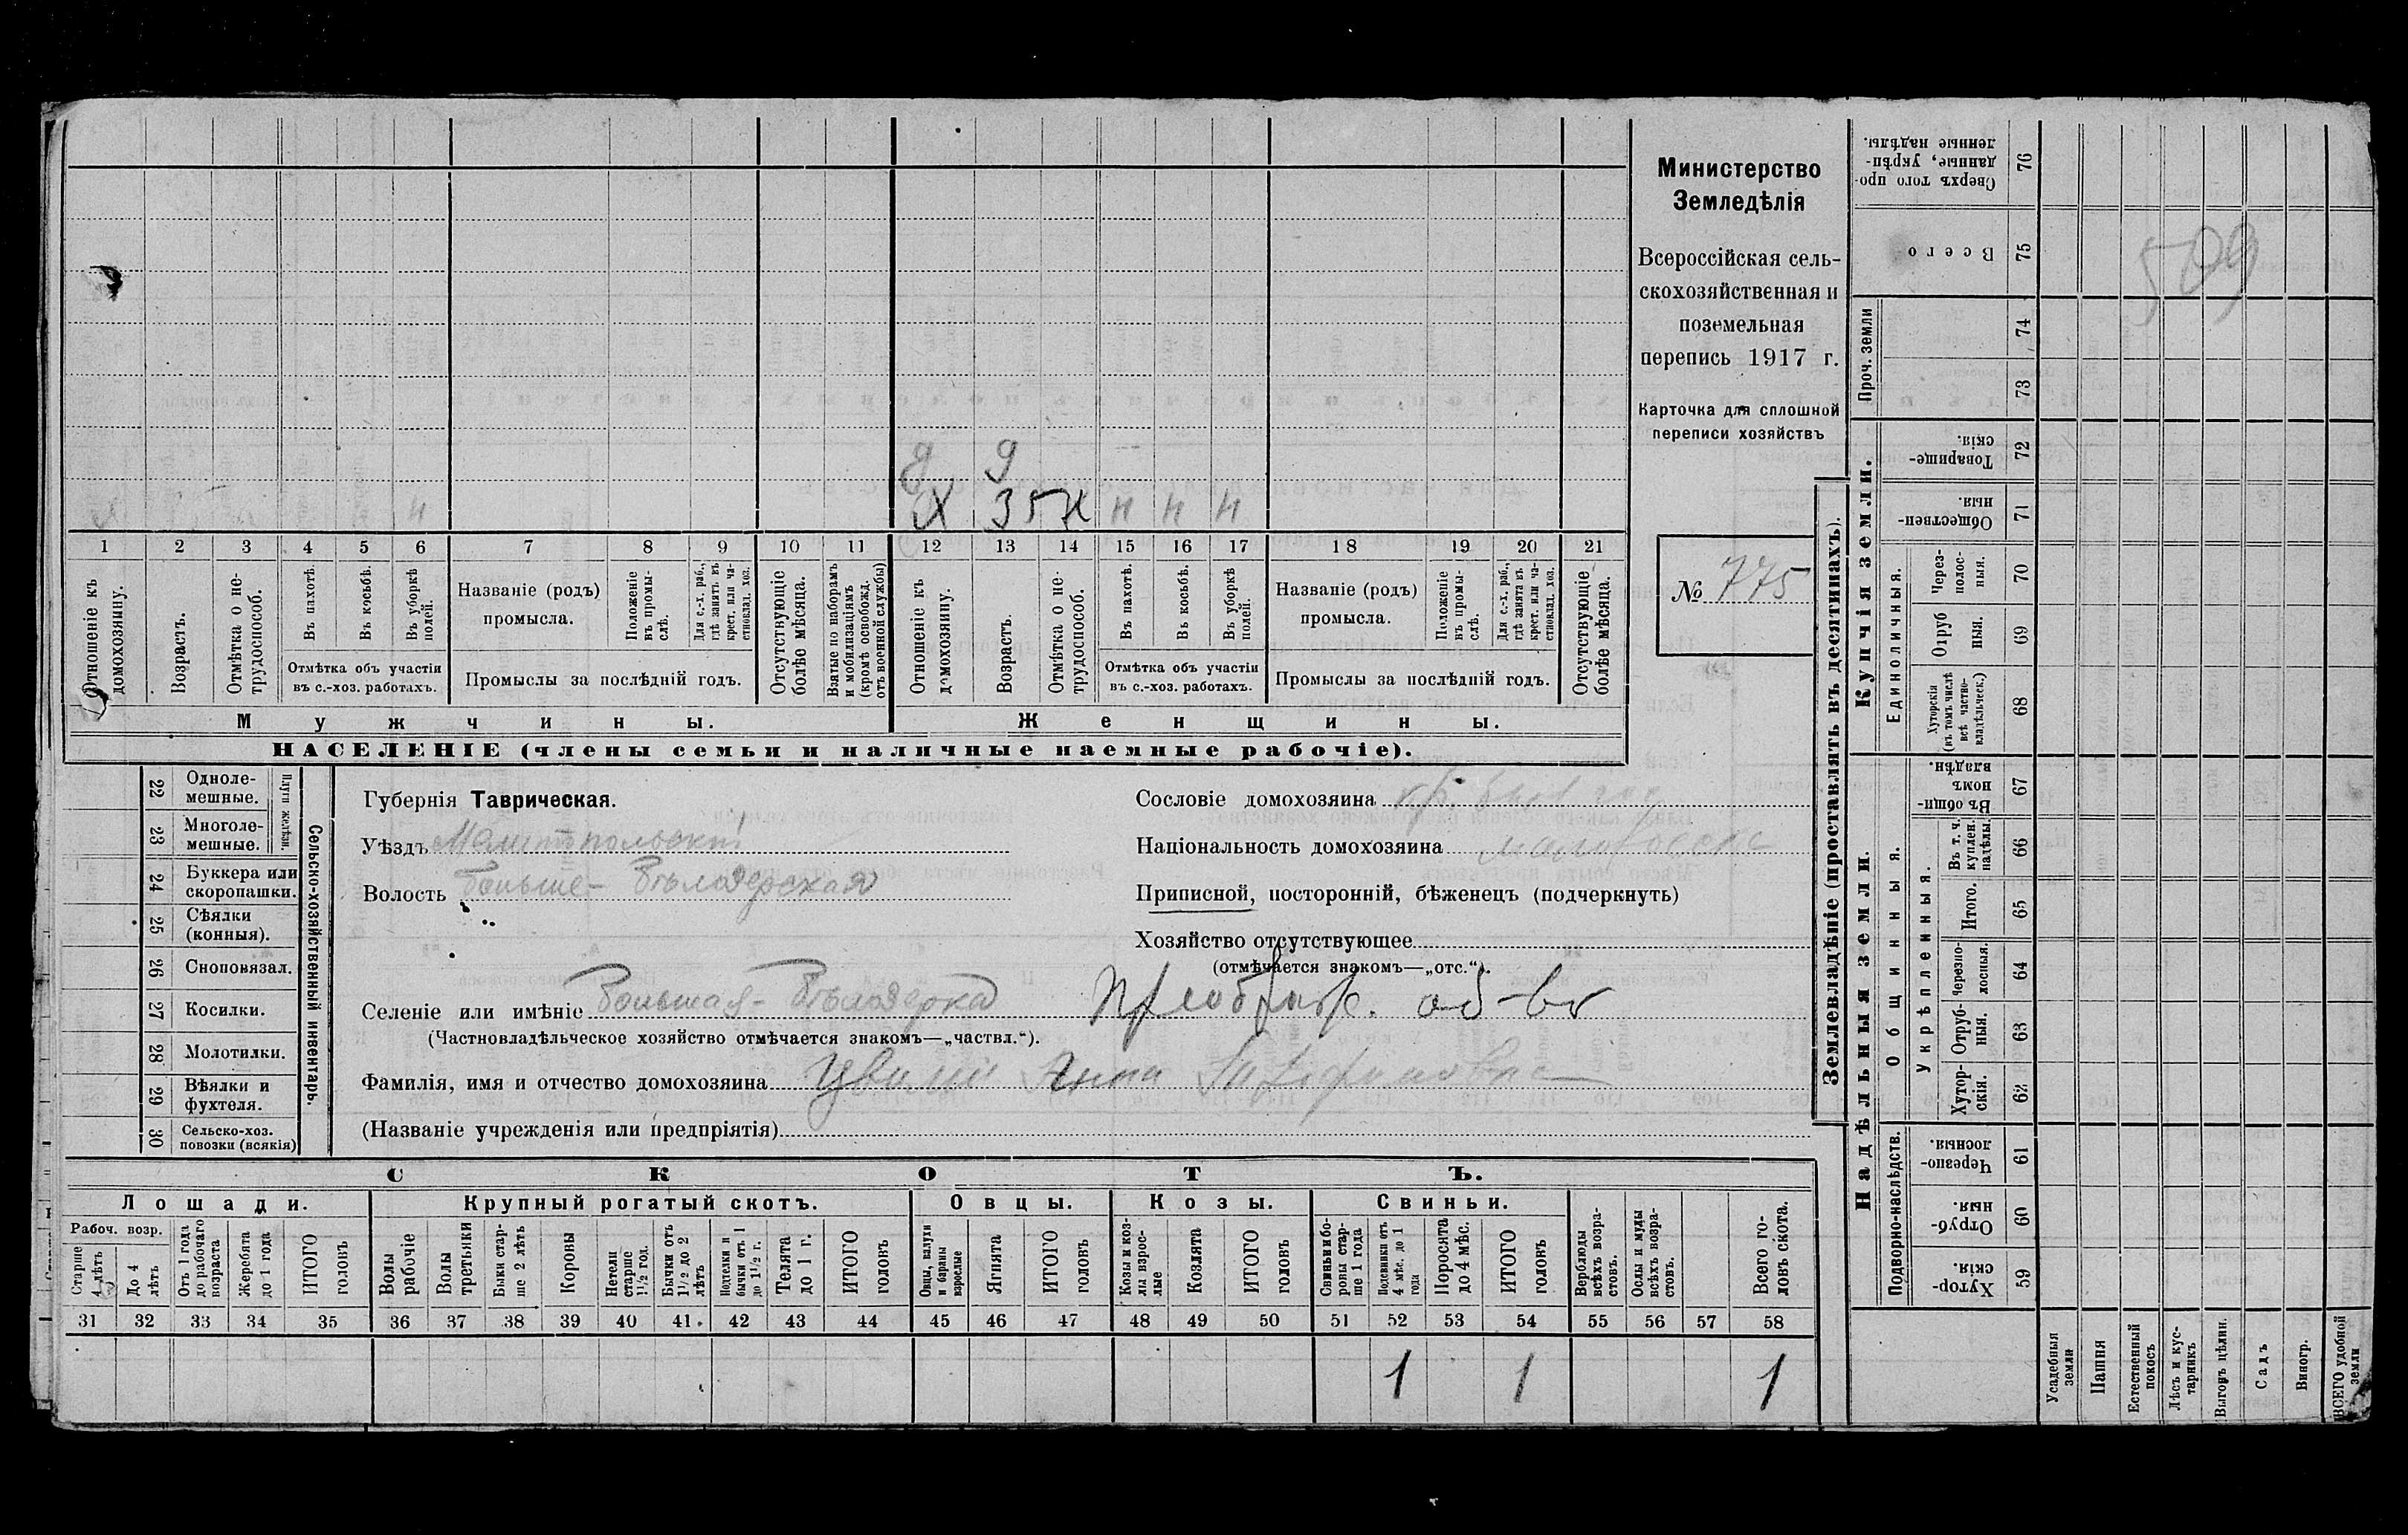 Министерство
Земледѣлія
Всероссійская сель-
скохозяйственная и
поземельная
перепись 1917 г.
Карточка для сплошной
переписи хозяйствъ
№ 775
д 9 —
Х 35 н н н н
н
1 2 3 4 5 6 7 8 9 10 11 12 13 14 15 16 17 18 19 20 21
Отношеніе къ домохозяину.
Возрастъ.
Отмѣтка о не-трудоспособ.
Въ пахотѣ.
Въ косьбѣ.
Въ уборкѣ полей.
Отмѣтка объ участіи
въ с.-хоз. работахъ.
Названіе (родъ)
промысла.
Положеніе въ промы-слѣ.
Для с.-х. раб., гдѣ занятъ въ крест. или ча-стновлад. хоз.
Промыслы за послѣдній годъ.
Отсутствующіе болѣе мѣсяца.
Взятые по наборамъ и мобилизаціямъ (кромѣ освобожд. отъ военной службы)
Отношеніе къ домохозяину.
Возрастъ.
Отмѣтка о не-трудоспособ.
Въ пахотѣ.
Въ косьбѣ.
Въ уборкѣ полей.
Отмѣтка объ участіи
въ с.-хоз. работахъ.
Названіе (родъ)
промысла.
Положеніе въ промы-слѣ.
Для с.-х. раб., гдѣ занята въ крест. или ча-стновлад. хоз.
Промыслы за послѣдній годъ.
Отсутствующіе болѣе мѣсяца.
Мужчины.
Женщины.
НАСЕЛЕНІЕ (члены семьи и наличные наемные рабочіе).
22 Одноле-мешные.
23 Многоле-мешные.
Плуги желѣзн.
24 Буккера или скоропашки.
25 Сѣялки (конныя).
26 Сноповязал.
27 Косилки.
28 Молотилки.
29 Вѣялки и фухтеля.
30 Сельско-хоз. повозки (всякія)
Сельско-хозяйственный инвентарь.
Губернія Таврическая.
Уѣздъ Мелитопольскій
Волость Больше-Бѣлозерская
Сословіе домохозяина кр.
Національность домохозяина малоросс
Приписной, посторонній, бѣженецъ (подчеркнуть)
Хозяйство отсутствующее
(отмѣчается знакомъ—„отс.“).
Селеніе или имѣніе Большая-Бѣлозерка Преображ. об-во
(Частновладѣльческое хозяйство отмѣчается знакомъ—„частвл.“).
Фамилія, имя и отчество домохозяина Анна
(Названіе учрежденія или предпріятія)
СКОТЪ.
Лошади. Крупный рогатый скотъ. Овцы. Козы. Свиньи.
Рабоч. возр.
Старше 4 лѣтъ
До 4 лѣтъ
Отъ 1 года до рабочаго возраста
Жеребята до 1 года
ИТОГО головъ
Волы рабочіе
Волы третьяки
Быки стар-ше 2 лѣтъ
Коровы
Нетели старше 1½ год.
Бычки отъ 1½ до 2 лѣтъ
Подтелки и бычки отъ 1 до 1½ г.
Телята до 1 г.
ИТОГО головъ
Овцы, валухи и бараны взрослые
Ягнята
ИТОГО головъ
Козы и коз-лы взрос-лые
Козлята
ИТОГО головъ
Свиньи и бо-ровы стар-ше 1 года
Подсвинки отъ 4 мѣс. до 1 года
Поросята до 4 мѣс.
ИТОГО головъ
Верблюды всѣхъ возра-стовъ.
Ослы и мулы всѣхъ возра-стовъ.
Всего го-ловъ скота.
31 32 33 34 35 36 37 38 39 40 41 42 43 44 45 46 47 48 49 50 51 52 53 54 55 56 57 58
1 1 1
Землевладѣніе (проставлять въ десятинахъ).
Надѣльныя земли.
Купчія земли.
Проч. земли
Подворно-наслѣдств.
Общинныя.
Укрѣпленныя.
Единоличныя.
76 Сверхъ того про-данные, укрѣп-ленные надѣлы.
75 Всего
74
73
72 Товарище-скія.
71 Обществен-ныя.
70 Через-полос-ныя.
69 Отруб-ныя.
68 Хуторскія (въ томъ числѣ всѣ частно-владѣльческ.)
67 Въ общин-номъ владѣн.
66 Въ т. ч. куплен. надѣлы.
65 Итого.
64 Черезпо-лосныя.
63 Отруб-ныя.
62 Хутор-скія.
61 Черезпо-лосныя.
60 Отруб-ныя.
59 Хутор-скія.
Усадебныя земли
Пашня
Естественный покосъ
Лѣсъ и кус-тарникъ
Выгонъ цѣлин.
Садъ
Виногр.
ВСЕГО удобной земли
509